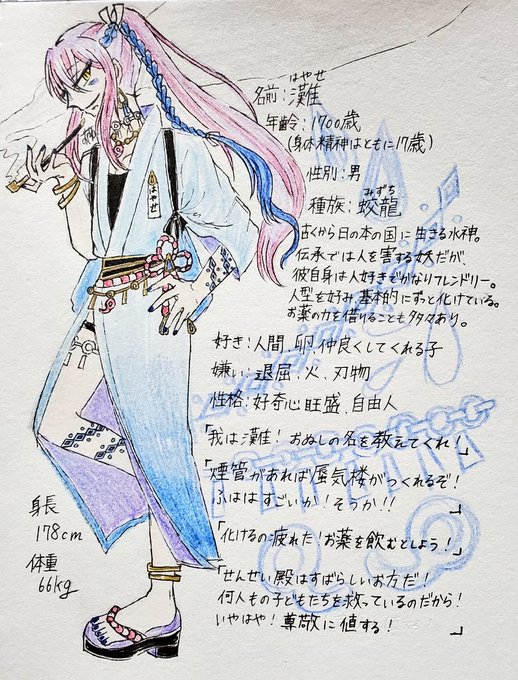 はやせ
名前：灘
年齢：1700歳
（身体精神はともに17歳）
性別：男
みずち
種族：蛟龍
古くから日の本の国に生きる水神。
伝承では人を害する妖だが、
彼自身は人好きでかなりフレンドリー。
人型を好み、基本的にずっと化けている。
お薬の力を借りることも多々あり。
好き：人間、卵、仲良くしてくれる子
嫌い：退屈、火、刃物
性格：好奇心旺盛、自由人
「我は灘！おぬしの名を教えてくれ！」
「煙管があれば蜃気楼がつくれるぞ！
ふははすごいか！そうか！！」
「化けるの疲れた！お薬を飲むとしよう！」
「せんせい殿はすばらしいお方だ！
何人もの子どもたちを救っているのだから！
いやはや！尊敬に値する！」
身長
178cm
体重
66kg
はやせ